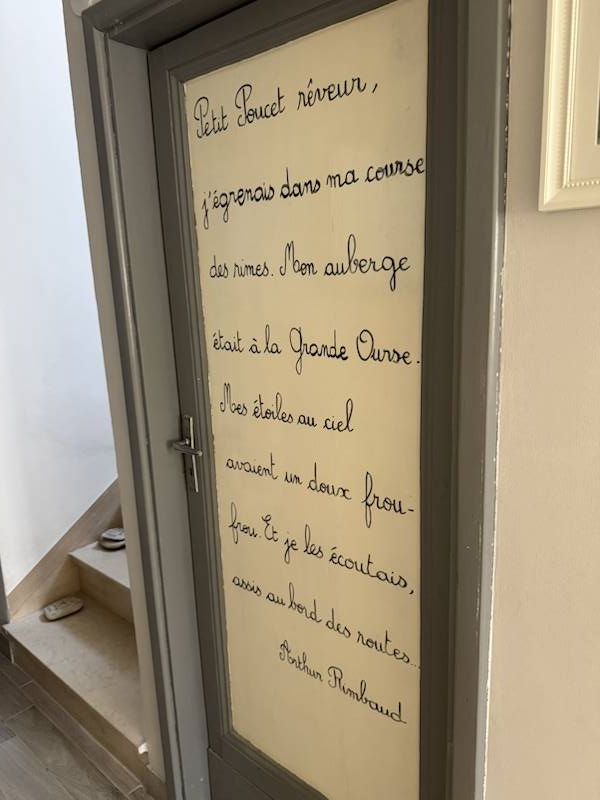 Petit Poucet rêveur,
j'égrenais dans ma course
des rimes. Mon auberge
était à la Grande Ourse.
Mes étoiles au ciel
avaient un doux frou-
frou. Et je les écoutais,
assis au bord des routes...
Arthur Rimbaud